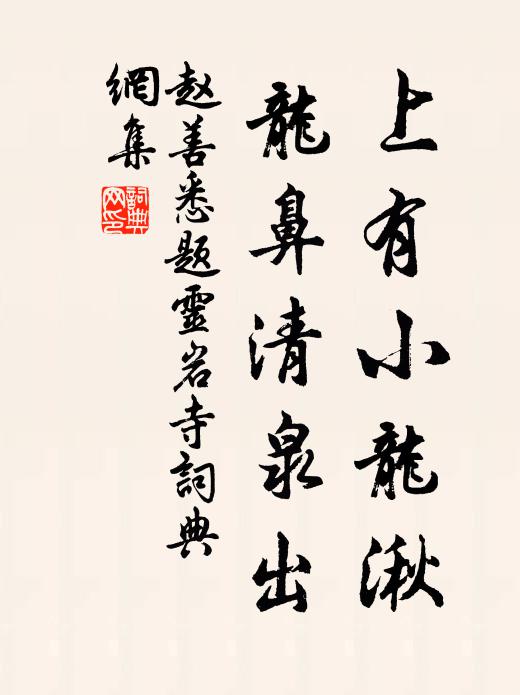 上有小龍湫
龍鼻清泉出
赵善悉题靈岩寺詞典
網集
詞典网印